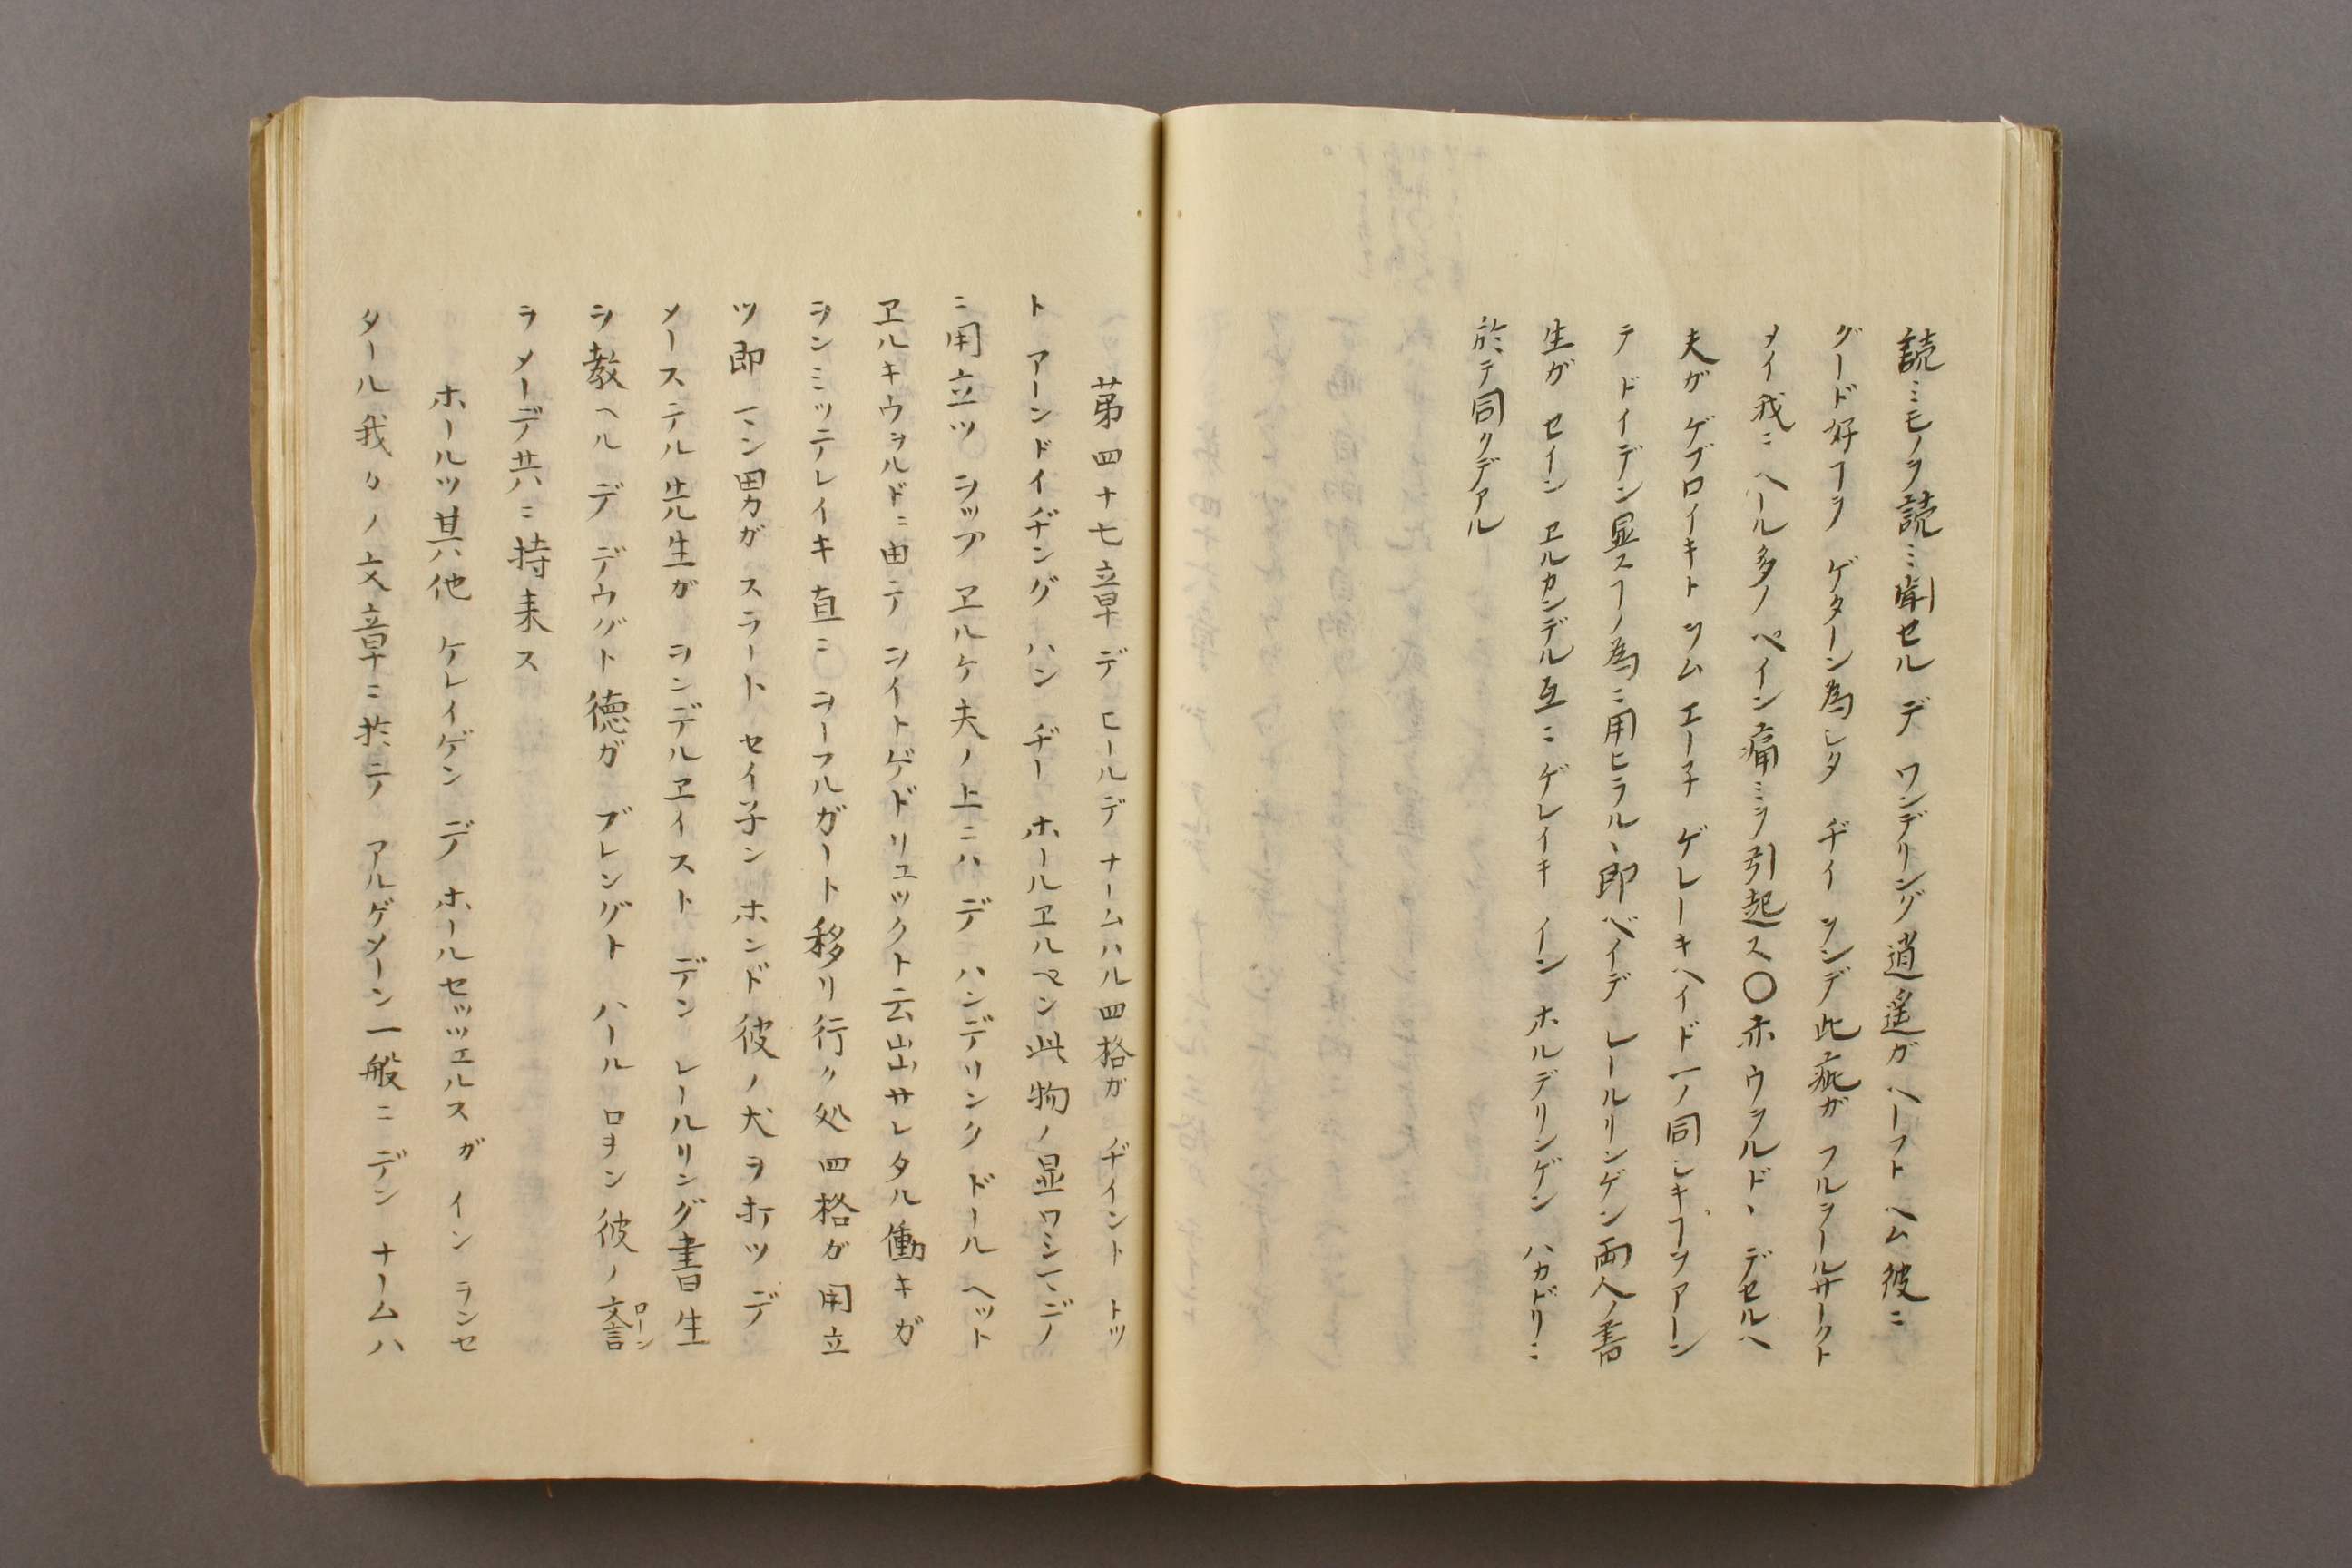 読ミモノヲ読ミ聞セル デ ワンデリング 逍遥ガ ヘーフト ヘム 彼ニ
グード 好ヿヲ ゲターン 為シタ ヂイ ソンデ 此疵ガ フルヲールサークト
メイ 我ニ ヘール 多ノ ペイン 痛ミヲ 引起ス〇亦 ウヲルド、デセルヘ
夫ガ ゲブロイキト ツム エー子 ゲレーキヘイド 一ノ同シキヿヲ アーン
テ ドイデン 显スヿノ為ニ用ヒラル、即 ベイデ レールリンゲン 両人ノ書
生ガ セイン ヱルカンデル 互ニ ゲレイキ イーン ホルデリンゲン ハカドリニ
於テ同クデアル
第四十七章 デ ヒールデ ナームハル 四格ガ ヂイント トツ
ト アーンドイヂング ハン ヂー ホールヱルペン 此物ノ显ワシマデノ
ニ用立ツ シップ ヱルケ 夫ノ上ニハ デ ハンデリンク ドール ヘット
ヱルキウヲルド ニ由テ ヲイトゲドリュックト 云出サレタル 働キガ
ヲンミッテレイキ 直ニ ヲーフルガート 移リ行ク処 四格ガ用立
ツ即 マン 男ガ スラート セイ子ン ホンド 彼ノ犬ヲ 打ツ デ
メーステル 先生ガ ヲンデルヱイスト デン レールリング 書生
ヲ 教ヘル デ デウグト 徳ガ ブレングト ハール ロヲン 彼ノ文言ローン
ヲ メーデ 共ニ 持来ス
ホールツ 其他 ケレイゲン デ ホールセッツエルスガ イン ランセ
タール 我々ノ文章ニ於テ アルゲメーン 一般ニ デン ナームハ